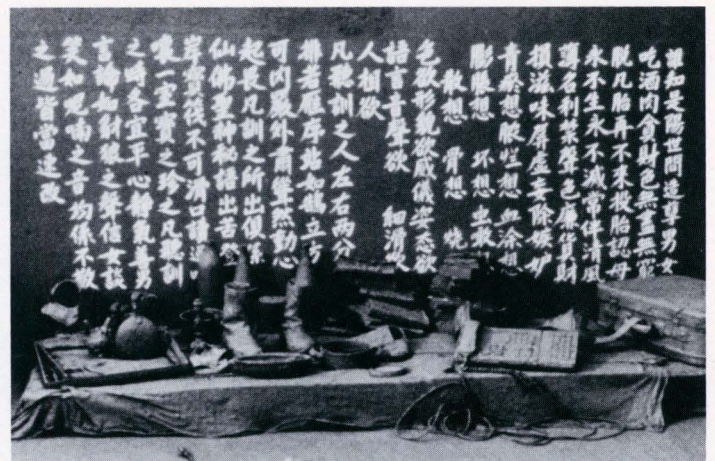 誰知是陽世間造孽男女
吃酒肉貪財色無盡無窮
脫凡胎再不來投胎認母
永不生永不滅常伴清風
薄名利禁聲色廉貨財
損滋味屏虛妄除嫉妒
青瘀想膿爛想血塗想
膨脹想 坏想虫敢
散想 骨想 燒
色欲形貌欲威儀姿态欲
語言音聲欲 細滑欲
人相欲
凡聽訓之人左右兩分
排若雁序站如鵠立方
可內嚴外肅聳然動心
起畏凡訓之所出俱係
仙佛聖神秘語出苦
岸寶筏不可滑口誦過
一室寶之珍之凡聽訓
之時各宜平心靜氣善男
言論如豺狼之聲信女談
笑如呢喃之音均係不敬
之過皆當速改